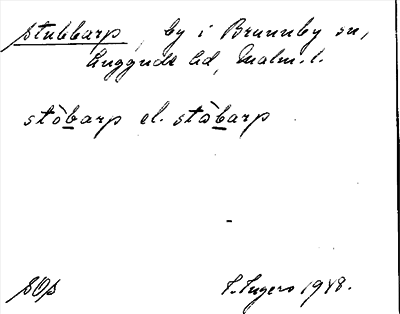 Stubbarp, by i Brunnby sn,
Luggude hd, Malm. l.
stòbarp el. stòbarp
SOS
I. Ingers 1948.